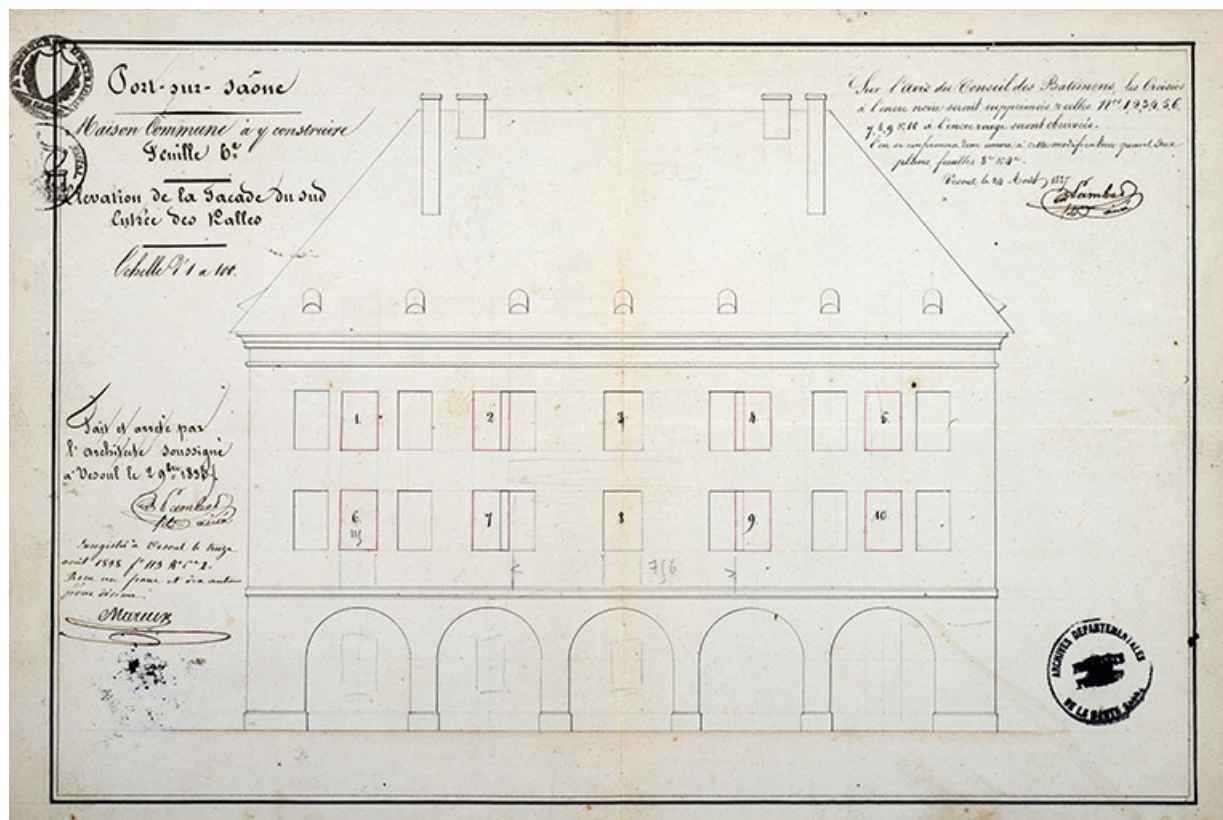 Port-sur-Saône
Maison Commune à y construire
Feuille 6e
Elevation de la Facade du sud
Entrée des Halles
Echelle d'1 a 100.
Sur l'avis du Conseil des Batimens, les Croisées
à l'encre noire seront supprimées & celles Nos 1, 2, 3, 4, 5, 6,
7, 8, 9 & 10 à l'encre rouge seront observées.
L'on se conformera à cette modification quant aux
plans, feuilles 3e & 4e.
Vesoul, le 24 Août
1
2
3
4
5
6
7
8
9
10
756
Fait et arrêté par
l'architecte soussigné
a Vesoul le 2
Enregistré à Vesoul le
août 1838 fo 113
Reçu un franc et dix centimes
pour décime.
ARCHIVES DEPARTEMENTALES
DE LA HAUTE SAONE